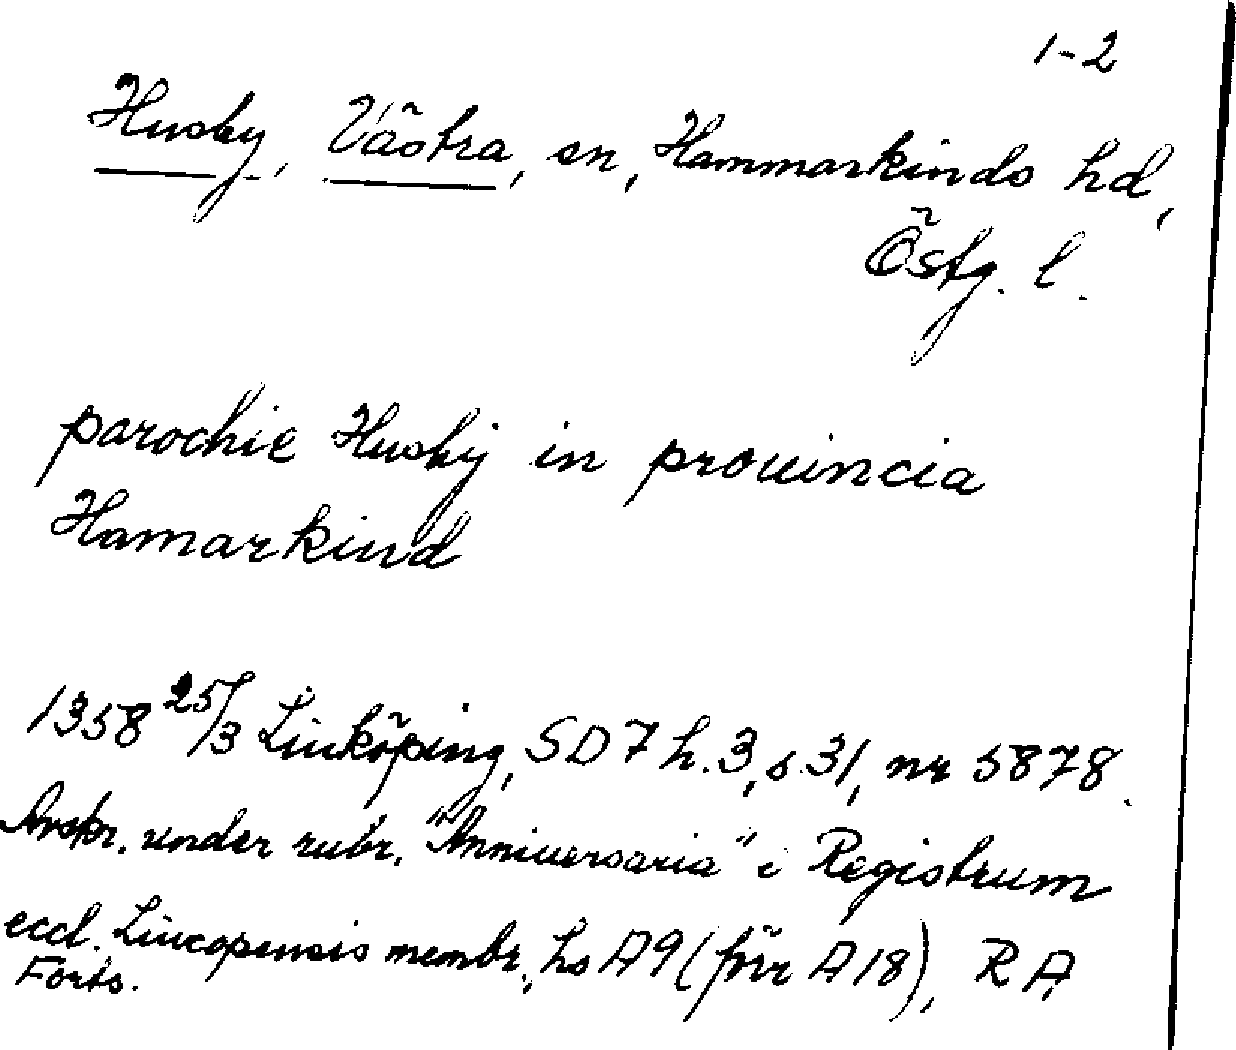 1-2
Husby, Västra, sn, Hammarkinds hd,
Östg. l.
parochie Husby in prouincia
Hamarkind
1358 25/3 Linköping, SD 7 h. 3, s. 31, nr 5878.
Avskr. under rubr. "Anniuersaria" i Registrum
eccl. Lincopensis membr., hs A9 (förr A 18), RA
Forts.